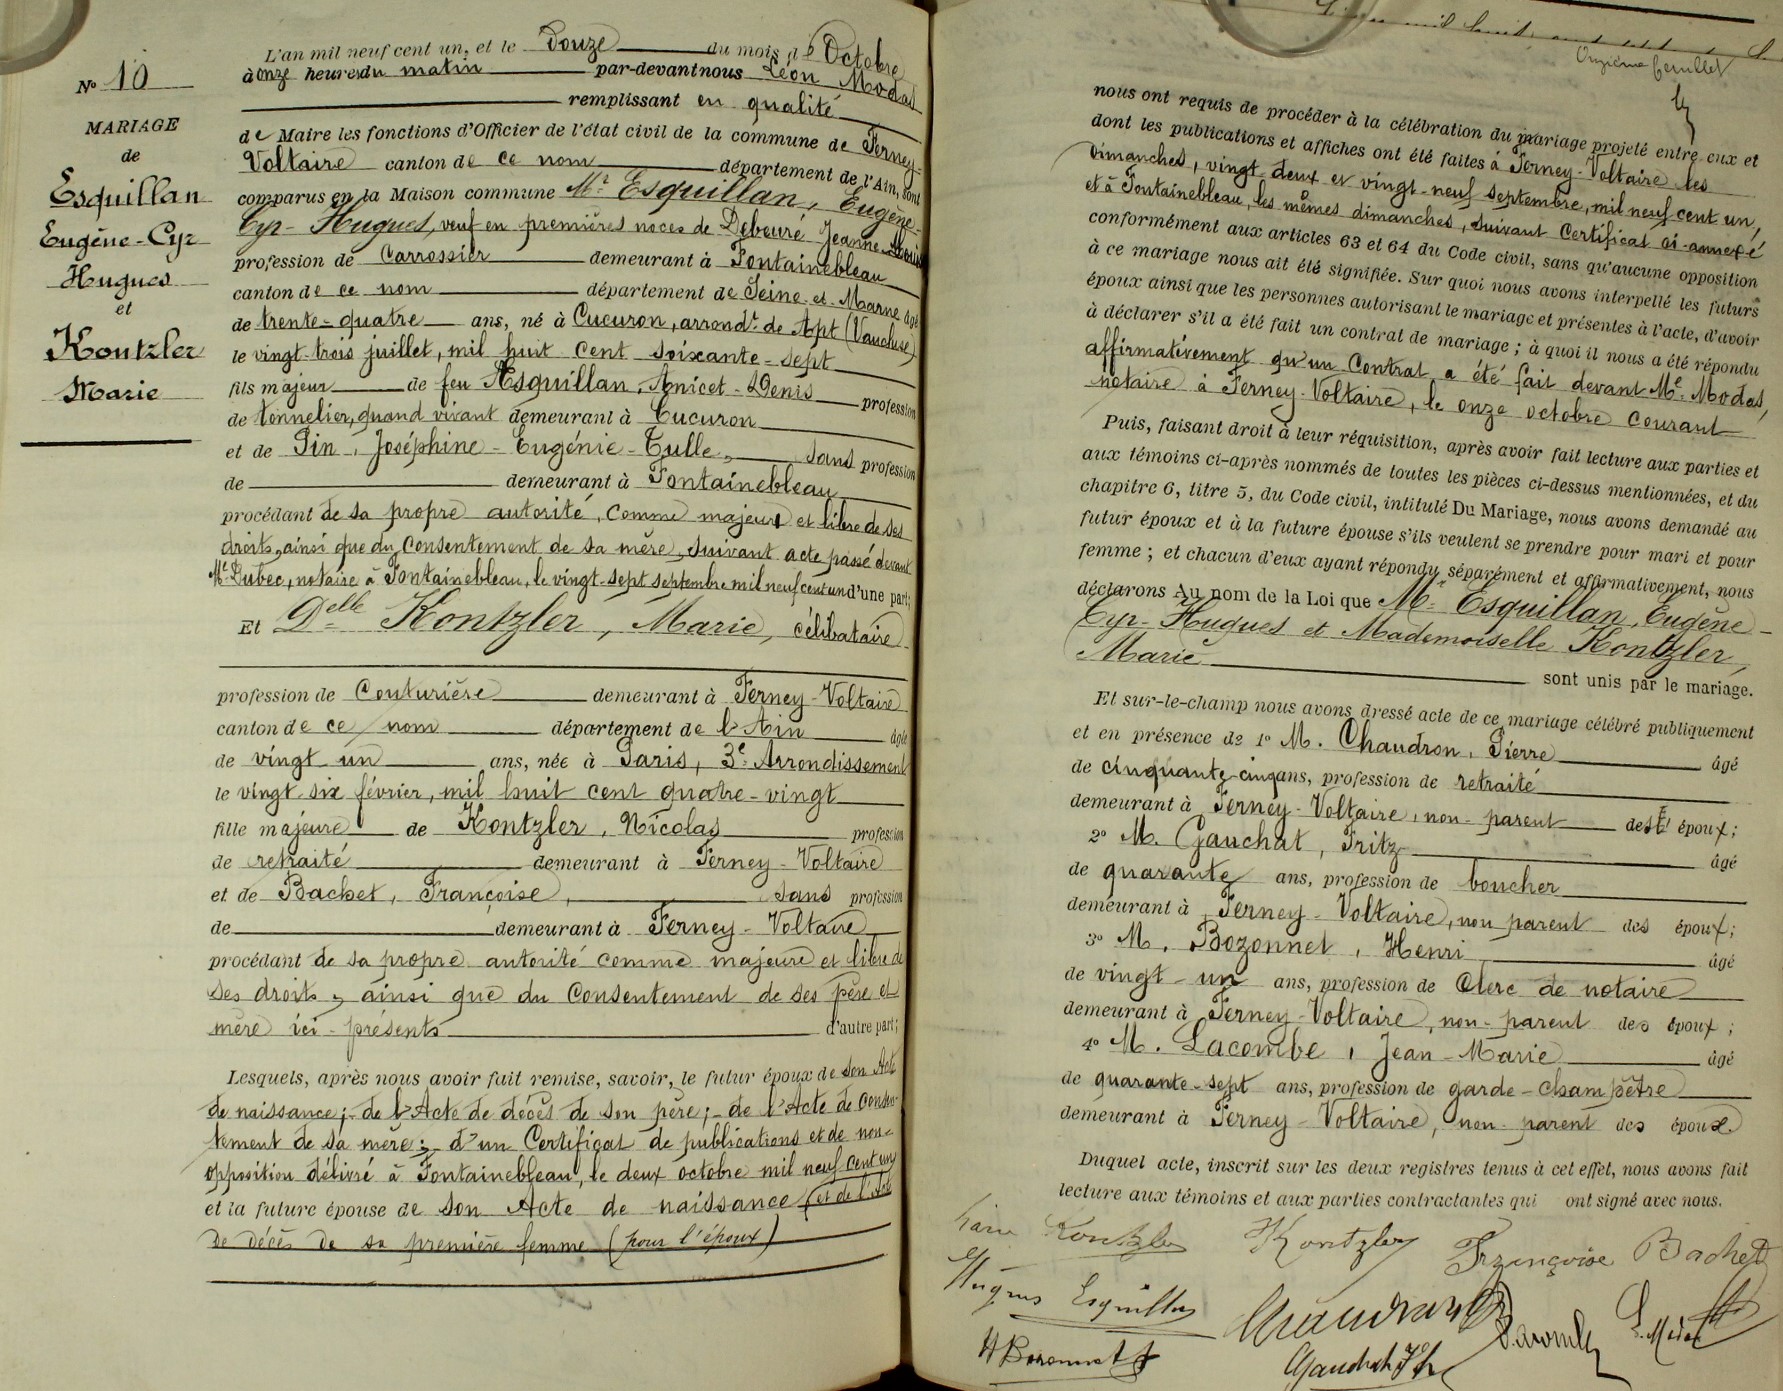 L'an mil neuf cent un, et le Douze du mois d'Octobre
à onze heures du matin par-devant nous Léon Modas
remplissant en qualité
de Maire les fonctions d'Officier de l'état civil de la commune de Ferney-
Voltaire canton de ce nom département de l'Ain, sont
comparus en la Maison commune Mr Esquillan, Eugène-
Cyr-Hugues, veuf en premières noces de Debeuré Jeanne-Louise
profession de Carrossier demeurant à Fontainebleau
canton de ce nom département de Seine-et-Marne âgé
de trente-quatre ans, né à Cucuron, arrondt de Apt (Vaucluse)
le vingt-trois juillet, mil huit cent soixante-sept
fils majeur de feu Esquillan, Anicet-Denis profession
de tonnelier, quand vivant demeurant à Cucuron
et de Pin, Joséphine-Eugénie-Tulle, sans profession
de demeurant à Fontainebleau
procédant de sa propre autorité, comme majeur et libre de ses
droits, ainsi que du consentement de sa mère, suivant acte passé devant
Me Dubec, notaire à Fontainebleau, le vingt-sept septembre mil neuf cent un d'une part;
Et Delle Kontzler, Marie, célibataire
profession de Couturière demeurant à Ferney-Voltaire
canton de ce nom département de l'Ain âgée
de vingt un ans, née à Paris, 3e Arrondissement
le vingt six février, mil huit cent quatre-vingt
fille majeure de Kontzler, Nicolas profession
de retraité demeurant à Ferney-Voltaire
et de Bachet, Françoise, sans profession
de demeurant à Ferney-Voltaire
procédant de sa propre autorité comme majeure et libre de
ses droits, ainsi que du Consentement de ses père et
mère ici-présents d'autre part;
Lesquels, après nous avoir fait remise, savoir, le futur époux de son Acte
de naissance; - de l'Acte de décès de son père; - de l'Acte de Consen-
tement de sa mère; - d'un Certificat de publications et de non-
opposition délivré à Fontainebleau, le deux octobre mil neuf cent un
et la future épouse de son Acte de naissance (et de l'Acte
de décès de sa première femme (pour l'époux)
No 10
MARIAGE
de
Esquillan
Eugène-Cyr
Hugues
et
Kontzler
Marie
Onzième feuillet
nous ont requis de procéder à la célébration du mariage projeté entre eux et
dont les publications et affiches ont été faites à Ferney-Voltaire les
dimanches, vingt-deux et vingt-neuf septembre, mil neuf cent un,
et à Fontainebleau, les mêmes dimanches, suivant Certificat ci-annexé
conformément aux articles 63 et 64 du Code civil, sans qu'aucune opposition
à ce mariage nous ait été signifiée. Sur quoi nous avons interpellé les futurs
époux ainsi que les personnes autorisant le mariage et présentes à l'acte, d'avoir
à déclarer s'il a été fait un contrat de mariage; à quoi il nous a été répondu
affirmativement qu'un Contrat a été fait devant Me Modas,
notaire à Ferney-Voltaire, le onze octobre courant
Puis, faisant droit à leur réquisition, après avoir fait lecture aux parties et
aux témoins ci-après nommés de toutes les pièces ci-dessus mentionnées, et du
chapitre 6, titre 5, du Code civil, intitulé Du Mariage, nous avons demandé au
futur époux et à la future épouse s'ils veulent se prendre pour mari et pour
femme; et chacun d'eux ayant répondu séparément et affirmativement, nous
déclarons Au nom de la Loi que Mr Esquillan, Eugène-
Cyr-Hugues et Mademoiselle Kontzler,
Marie sont unis par le mariage.
Et sur-le-champ nous avons dressé acte de ce mariage célébré publiquement
et en présence de 1o M. Chaudron, Pierre âgé
de cinquante-cinq ans, profession de retraité
demeurant à Ferney-Voltaire, non-parent des époux;
2o M. Gauchat, Fritz âgé
de quarante ans, profession de boucher
demeurant à Ferney-Voltaire, non parent des époux;
3o M. Bozonnet, Henri âgé
de vingt-un ans, profession de Clerc de notaire
demeurant à Ferney-Voltaire, non-parent des époux;
4o M. Lacombe, Jean-Marie âgé
de quarante-sept ans, profession de garde-champêtre
demeurant à Ferney-Voltaire, non-parent des époux.
Duquel acte, inscrit sur les deux registres tenus à cet effet, nous avons fait
lecture aux témoins et aux parties contractantes qui ont signé avec nous.
Kontzler Kontzler Françoise Bachet
Hugues Esquillan Chaudron Lacombe L. Modas
H Bozonnet Gauchat